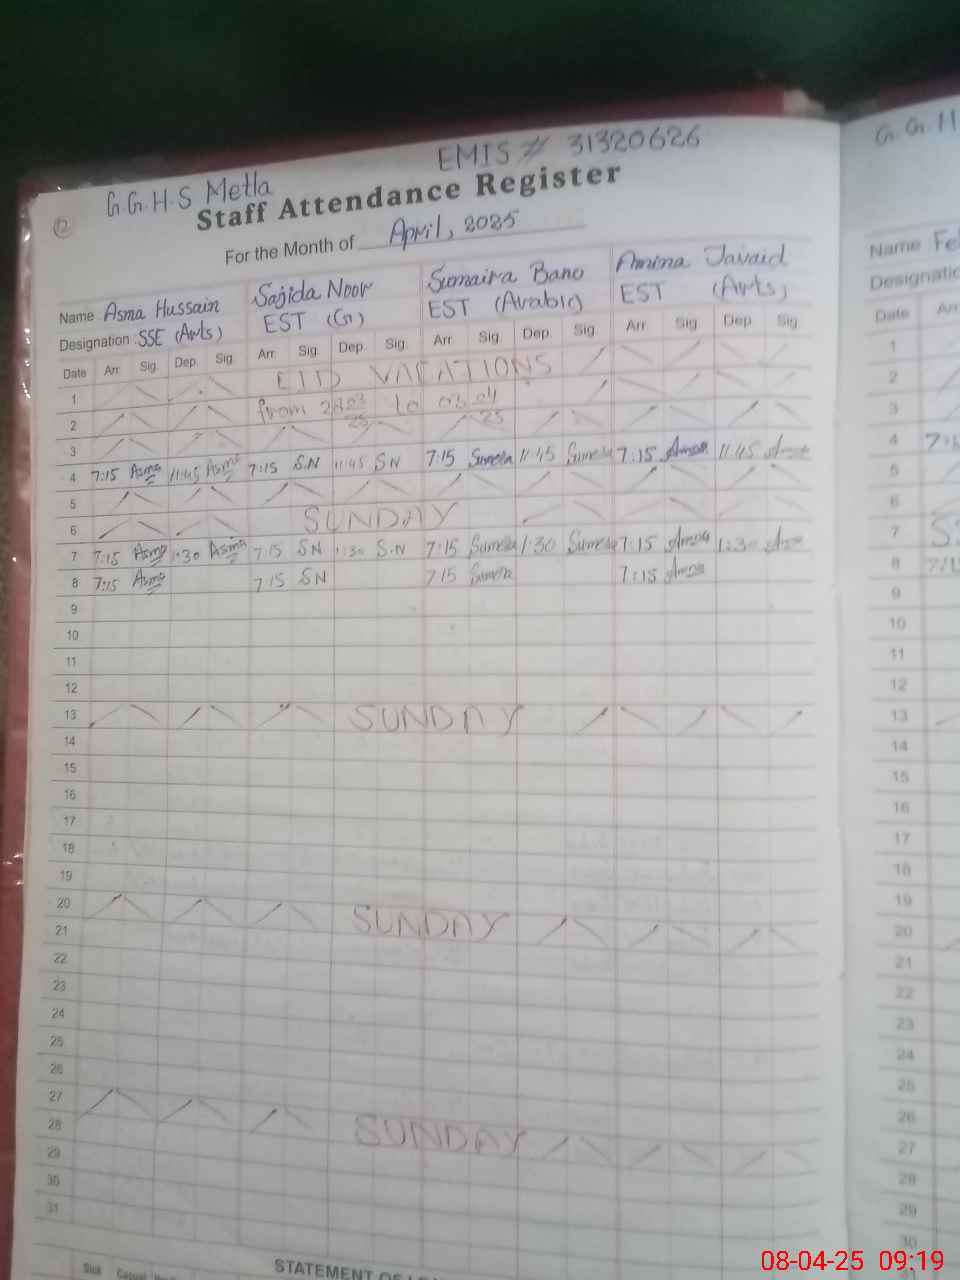 EMIS # 31320626
G.G.H.S Metla
Staff Attendance Register
12
For the Month of April, 2025
Name Asma Hussain Sajida Noor Sumaira Bano Amina Javaid
Designation SSE (Arts) EST (G) EST (Arabic) EST (Arts)
Date Arr. Sig. Dep. Sig. Arr. Sig. Dep. Sig. Arr. Sig. Dep. Sig. Arr. Sig. Dep. Sig.
1 EID VACATIONS
2 from to
3
4 7:15 Asma 11:45 Asma 7:15 SN 11:45 SN 7:15 Sumera 11:45 Sumera 7:15 Amna 11:45 Amna
5
6 SUNDAY
7 7:15 Asma 1:30 Asma 7:15 SN 1:30 S.N 7:15 Sumera 1:30 Sumera 7:15 Amna 1:30
8 7:15 Asma 7:15 SN 7:15 Sumera 7:15 Amna
9
10
11
12
13 SUNDAY
14
15
16
17
18
19
20 SUNDAY
21
22
23
24
25
26
27 SUNDAY
28
29
30
31
Sick Casual
STATEMENT OF
G.G.H
Name
Designatio
Date
1
2
3
4
5
6
7
8
9
10
11
12
13
14
15
16
17
18
19
20
21
22
23
24
25
26
27
28
29
30
08-04-25 09:19